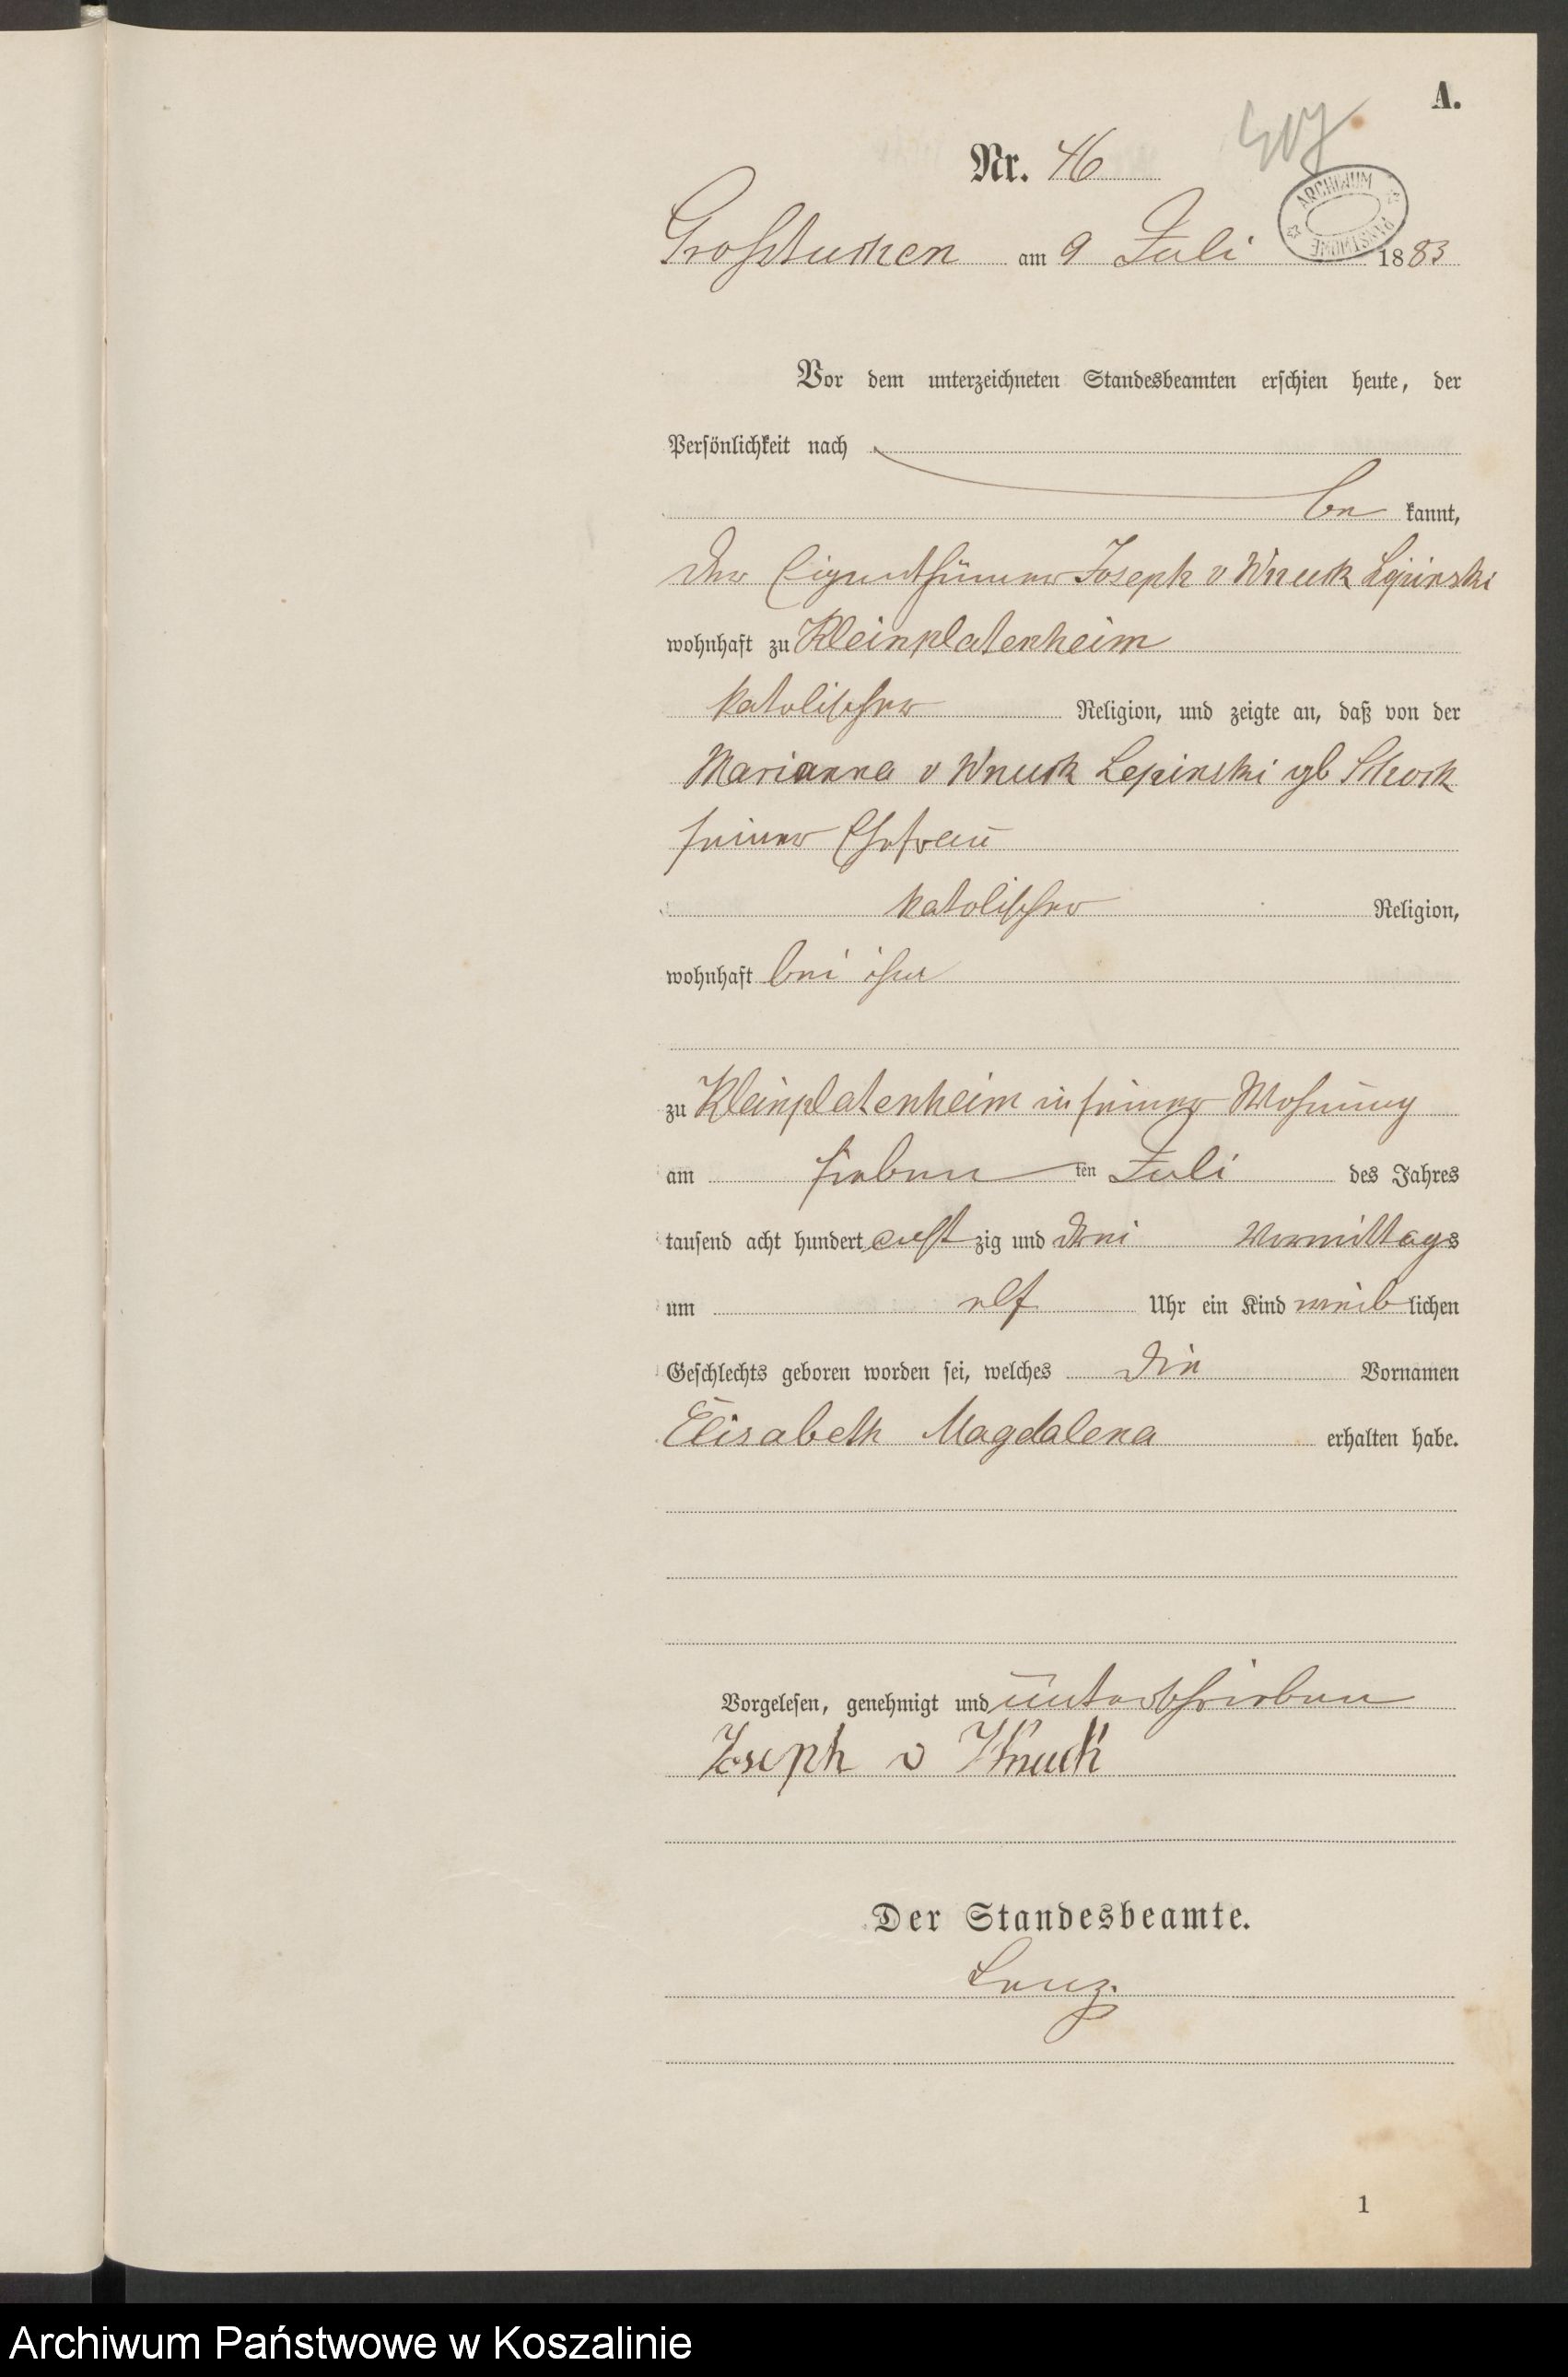 A.
Nr. 46
ARCHIWUM PAŃSTWOWE
Großtuchen am 9 Juli 1883
Vor dem unterzeichneten Standesbeamten erschien heute, der
Persönlichkeit nach
be kannt,
der Eigenthümer Joseph v Wnuck Lepinski
wohnhaft zu Kleinplatenheim
katolischer Religion, und zeigte an, daß von der
Marianna v Wnuck Lepinski gb
seiner Ehefrau
katolischer Religion,
wohnhaft bei ihm
zu Kleinplatenheim in seiner Wohnung
am sieben ten Juli des Jahres
tausend acht hundert acht zig und drei Vormittags
um elf Uhr ein Kind weib lichen
Geschlechts geboren worden sei, welches die Vornamen
Elisabeth Magdalena erhalten habe.
Vorgelesen, genehmigt und unterschrieben
Joseph v Wnuck
Der Standesbeamte.
Lenz.
1
Archiwum Państwowe w Koszalinie